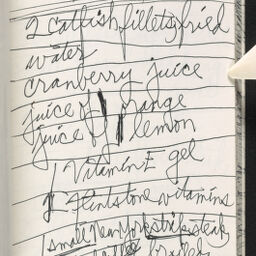 2 catfish fillets, fried
water
cranberry juice
juice of 1 orange
juice of 1 lemon
1 Vitamin E gel
2 Flintstone vitamins
1 small New York strip steak
broiled